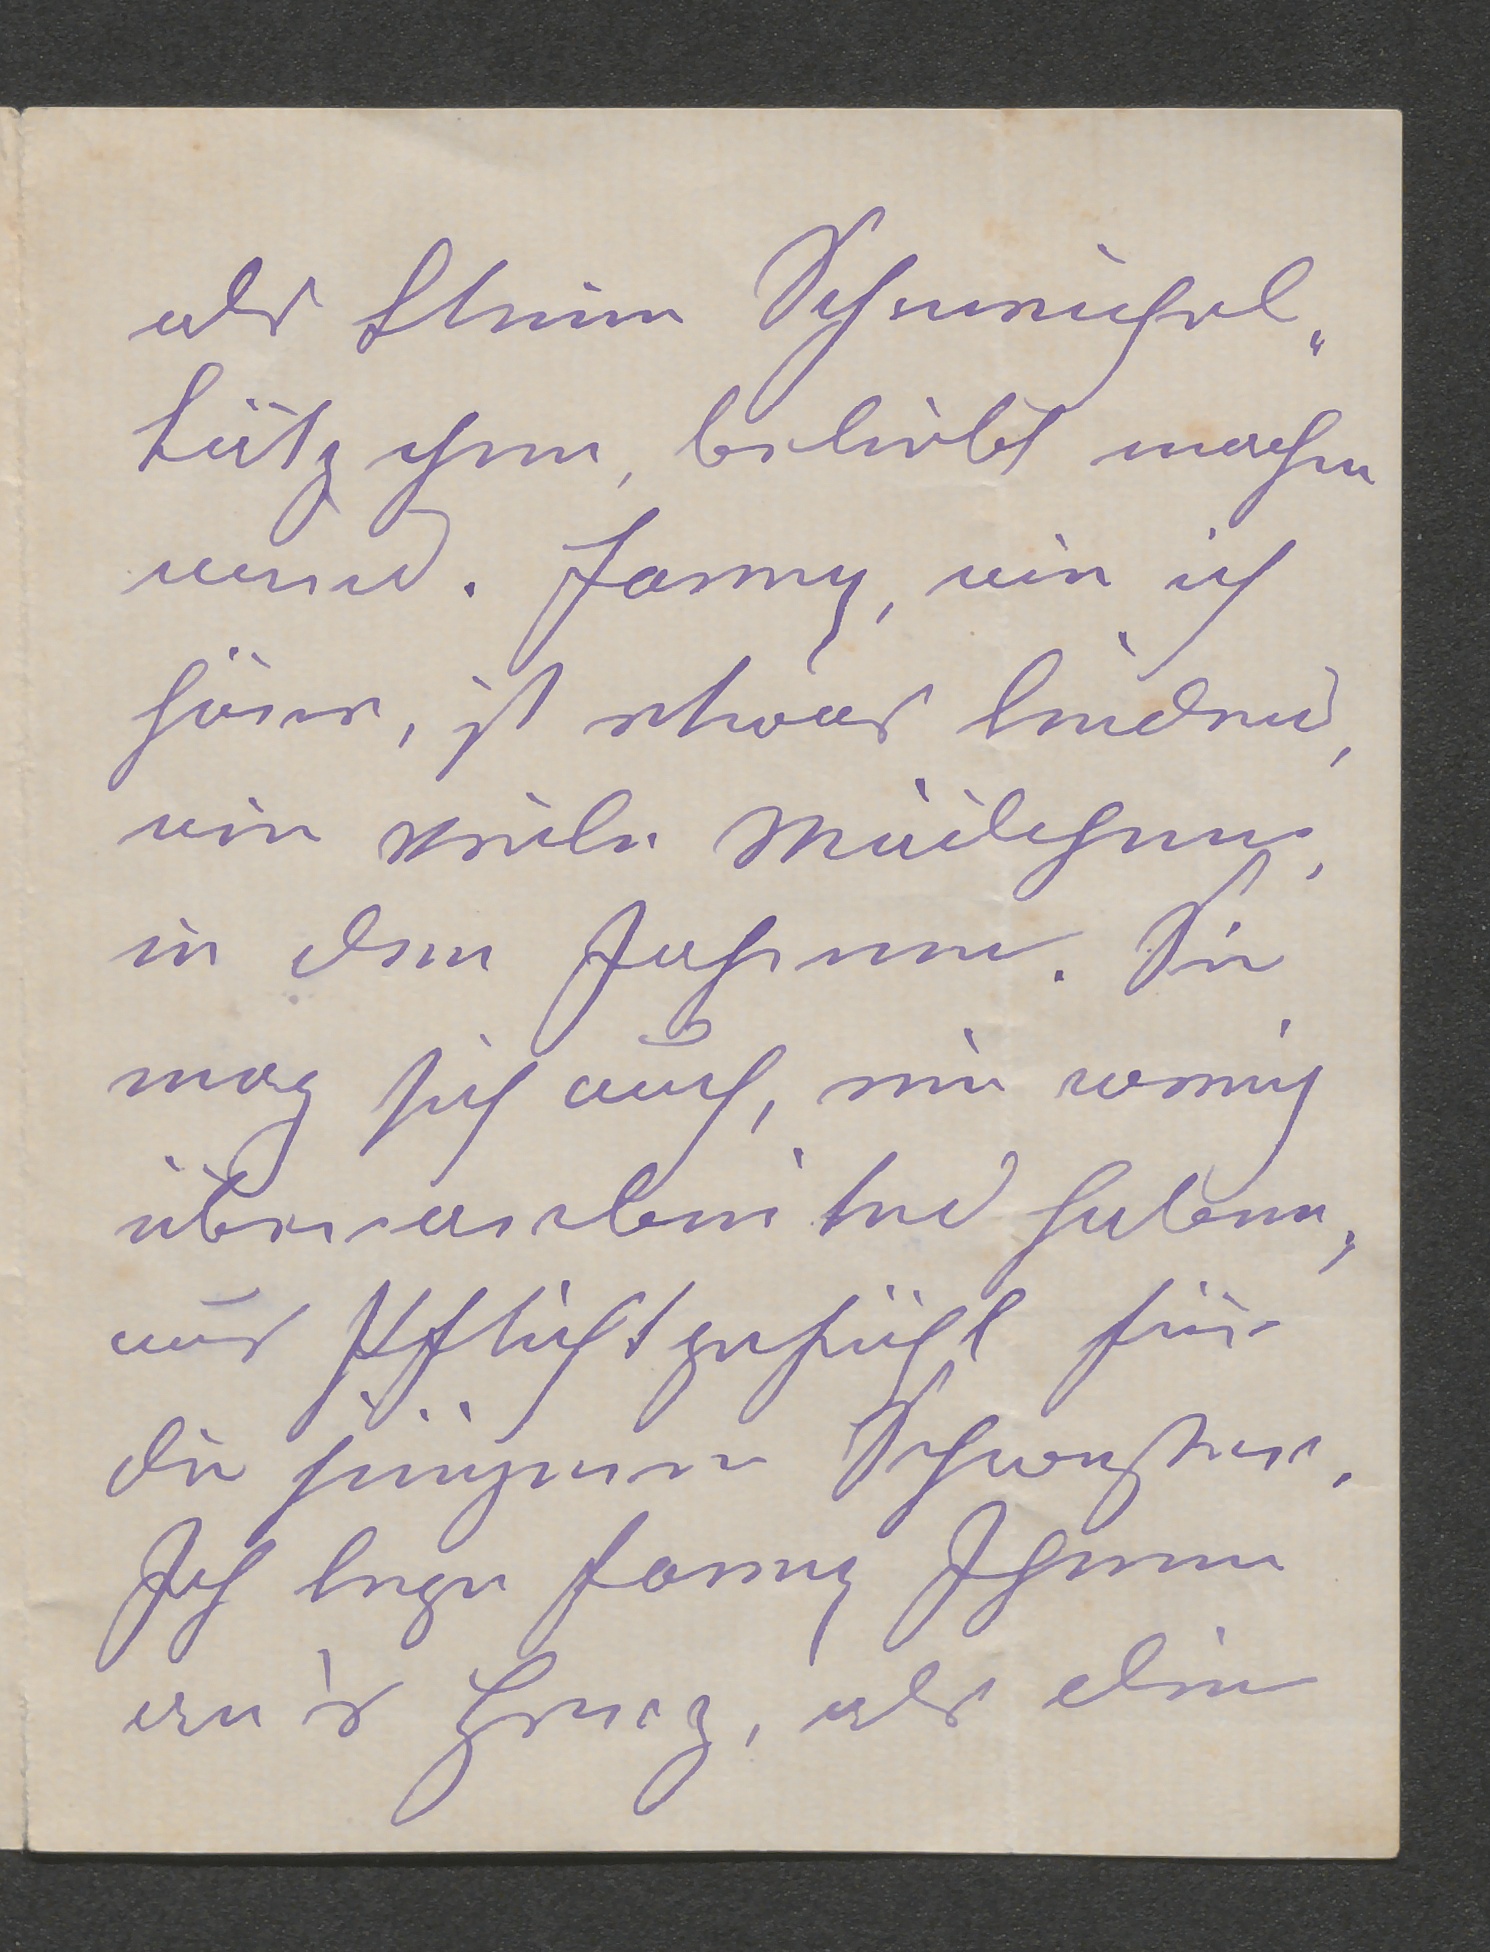 als kleine Schmeichel„
kätzchen, beliebt machen
werd. Fanny, wie ich
höre, ist etwas leidend,
wie viele Mädchen,
in den Jahren. Sie
mag sich auch, ein wenig
überarbeitet haben,
aus Pflichtgefühl für
die jüngere Schwester.
Ich lege Fanny Ihnen
an's Herz, als die